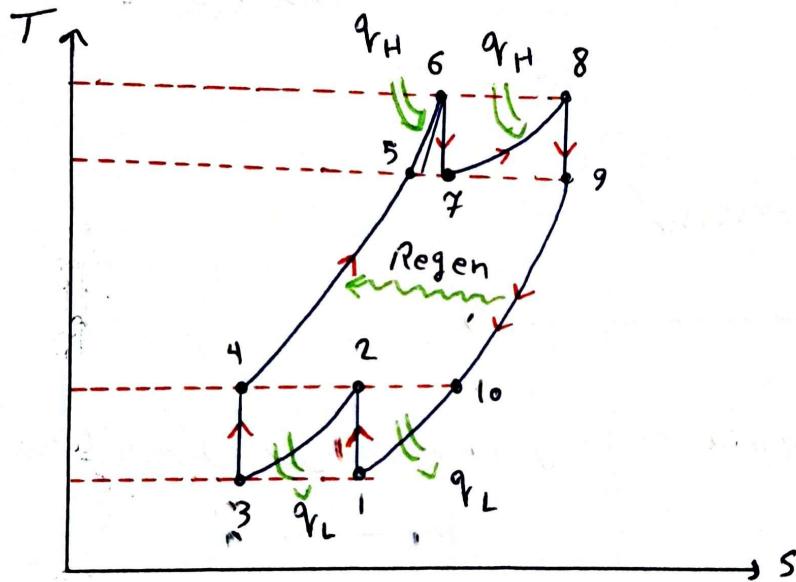 T
q_H
q_H
6
8
5
7
9
Regen
4
2
10
3
1
q_L
q_L
s